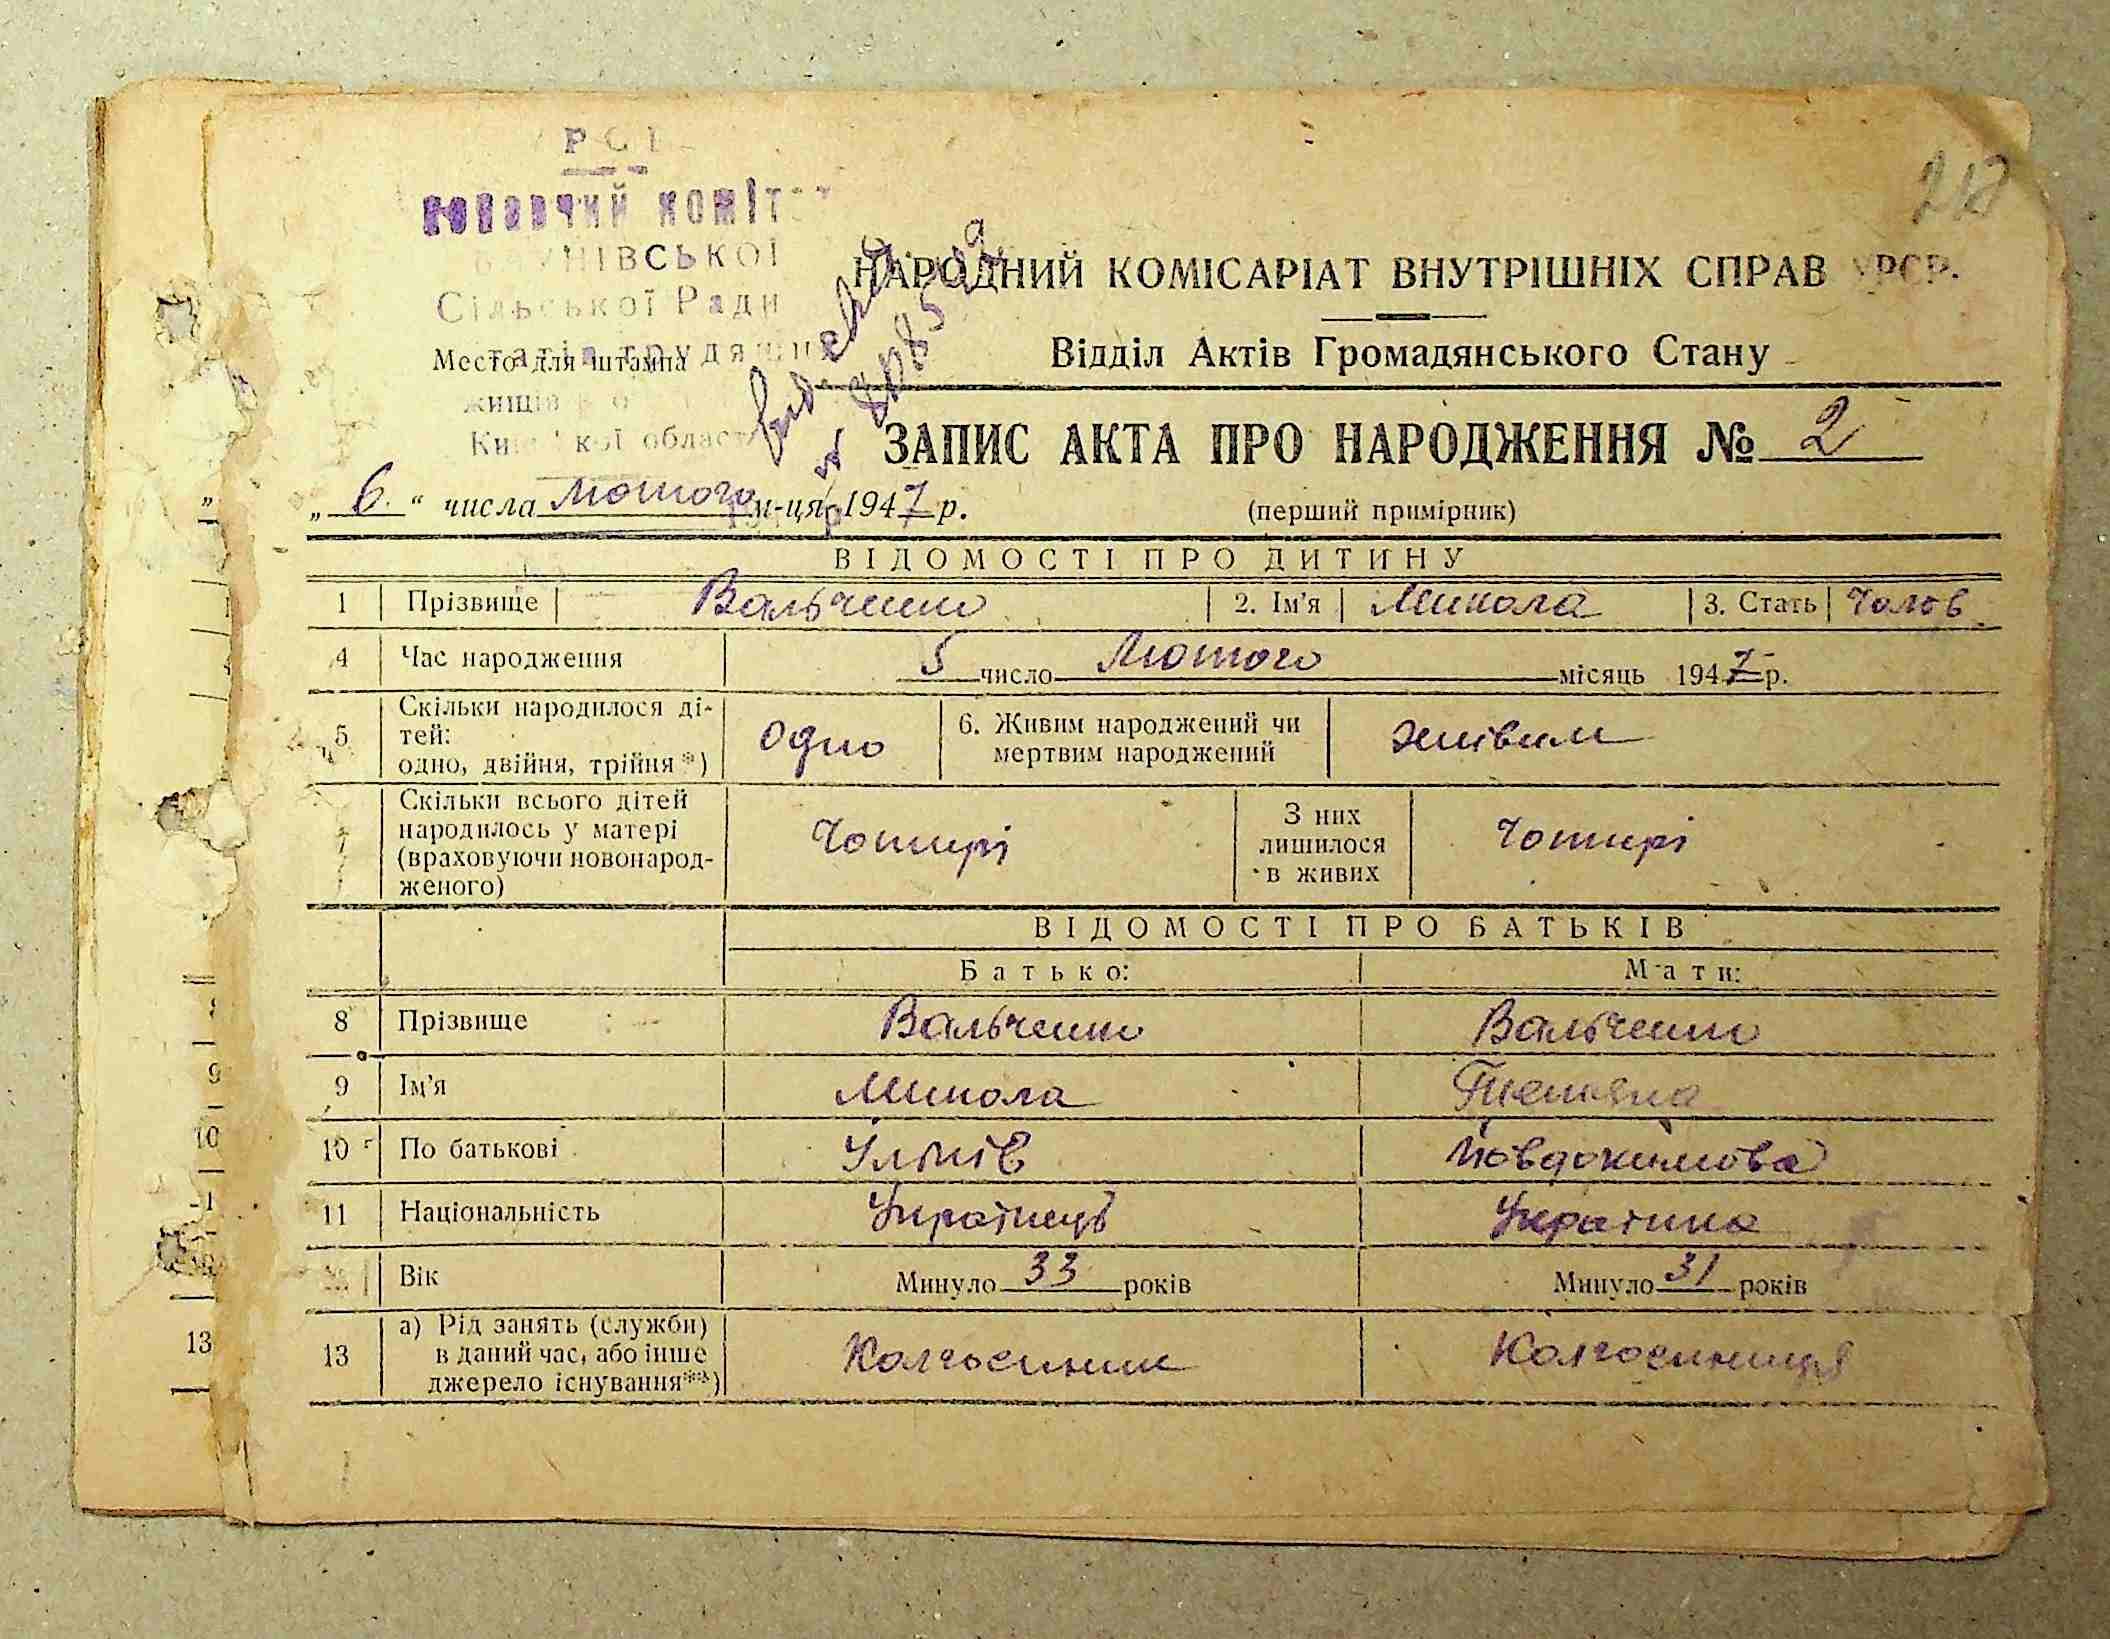 РСР
комітет
НІВСЬКОЇ
Сільської Ради
Место для штампа
області
218
НАРОДНИЙ КОМІСАРІАТ ВНУТРІШНІХ СПРАВ УРСР.
Відділ Актів Громадянського Стану
ЗАПИС АКТА ПРО НАРОДЖЕННЯ № 2
„ 6 “ числа лютого м-ця 1947 р.
(перший примірник)
ВІДОМОСТІ ПРО ДИТИНУ
1 Прізвище Вальченко 2. Ім'я Микола 3. Стать Чолов
4 Час народження 5 число Лютого місяць 1947 р.
5 Скільки народилося ді-
тей:
одно, двійня, трійня*) одно 6. Живим народжений чи
мертвим народжений живим
7 Скільки всього дітей
народилось у матері
(враховуючи новонарод-
женого) Чотирі З них
лишилося
в живих Чотирі
ВІДОМОСТІ ПРО БАТЬКІВ
Батько: Мати:
8 Прізвище Вальченко Вальченко
9 Ім'я Микола Тетяна
10 По батькові Ілльків Йовдокимова
11 Національність Українець Українка
Вік Минуло 33 років Минуло 31 років
13 а) Рід занять (служби)
в даний час, або інше
джерело існування**) Колгоспник Колгоспниця
9
10
13